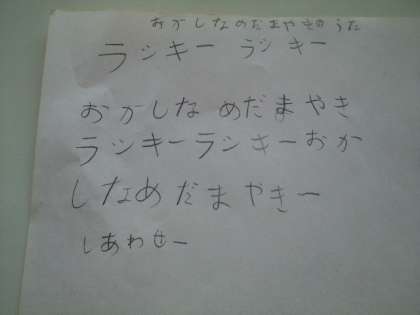 おかしなめだまやきのうた
ラッキー ラッキー
おかしな めだまやき
ラッキーラッキーおか
しなめだまやきー
しあわせー